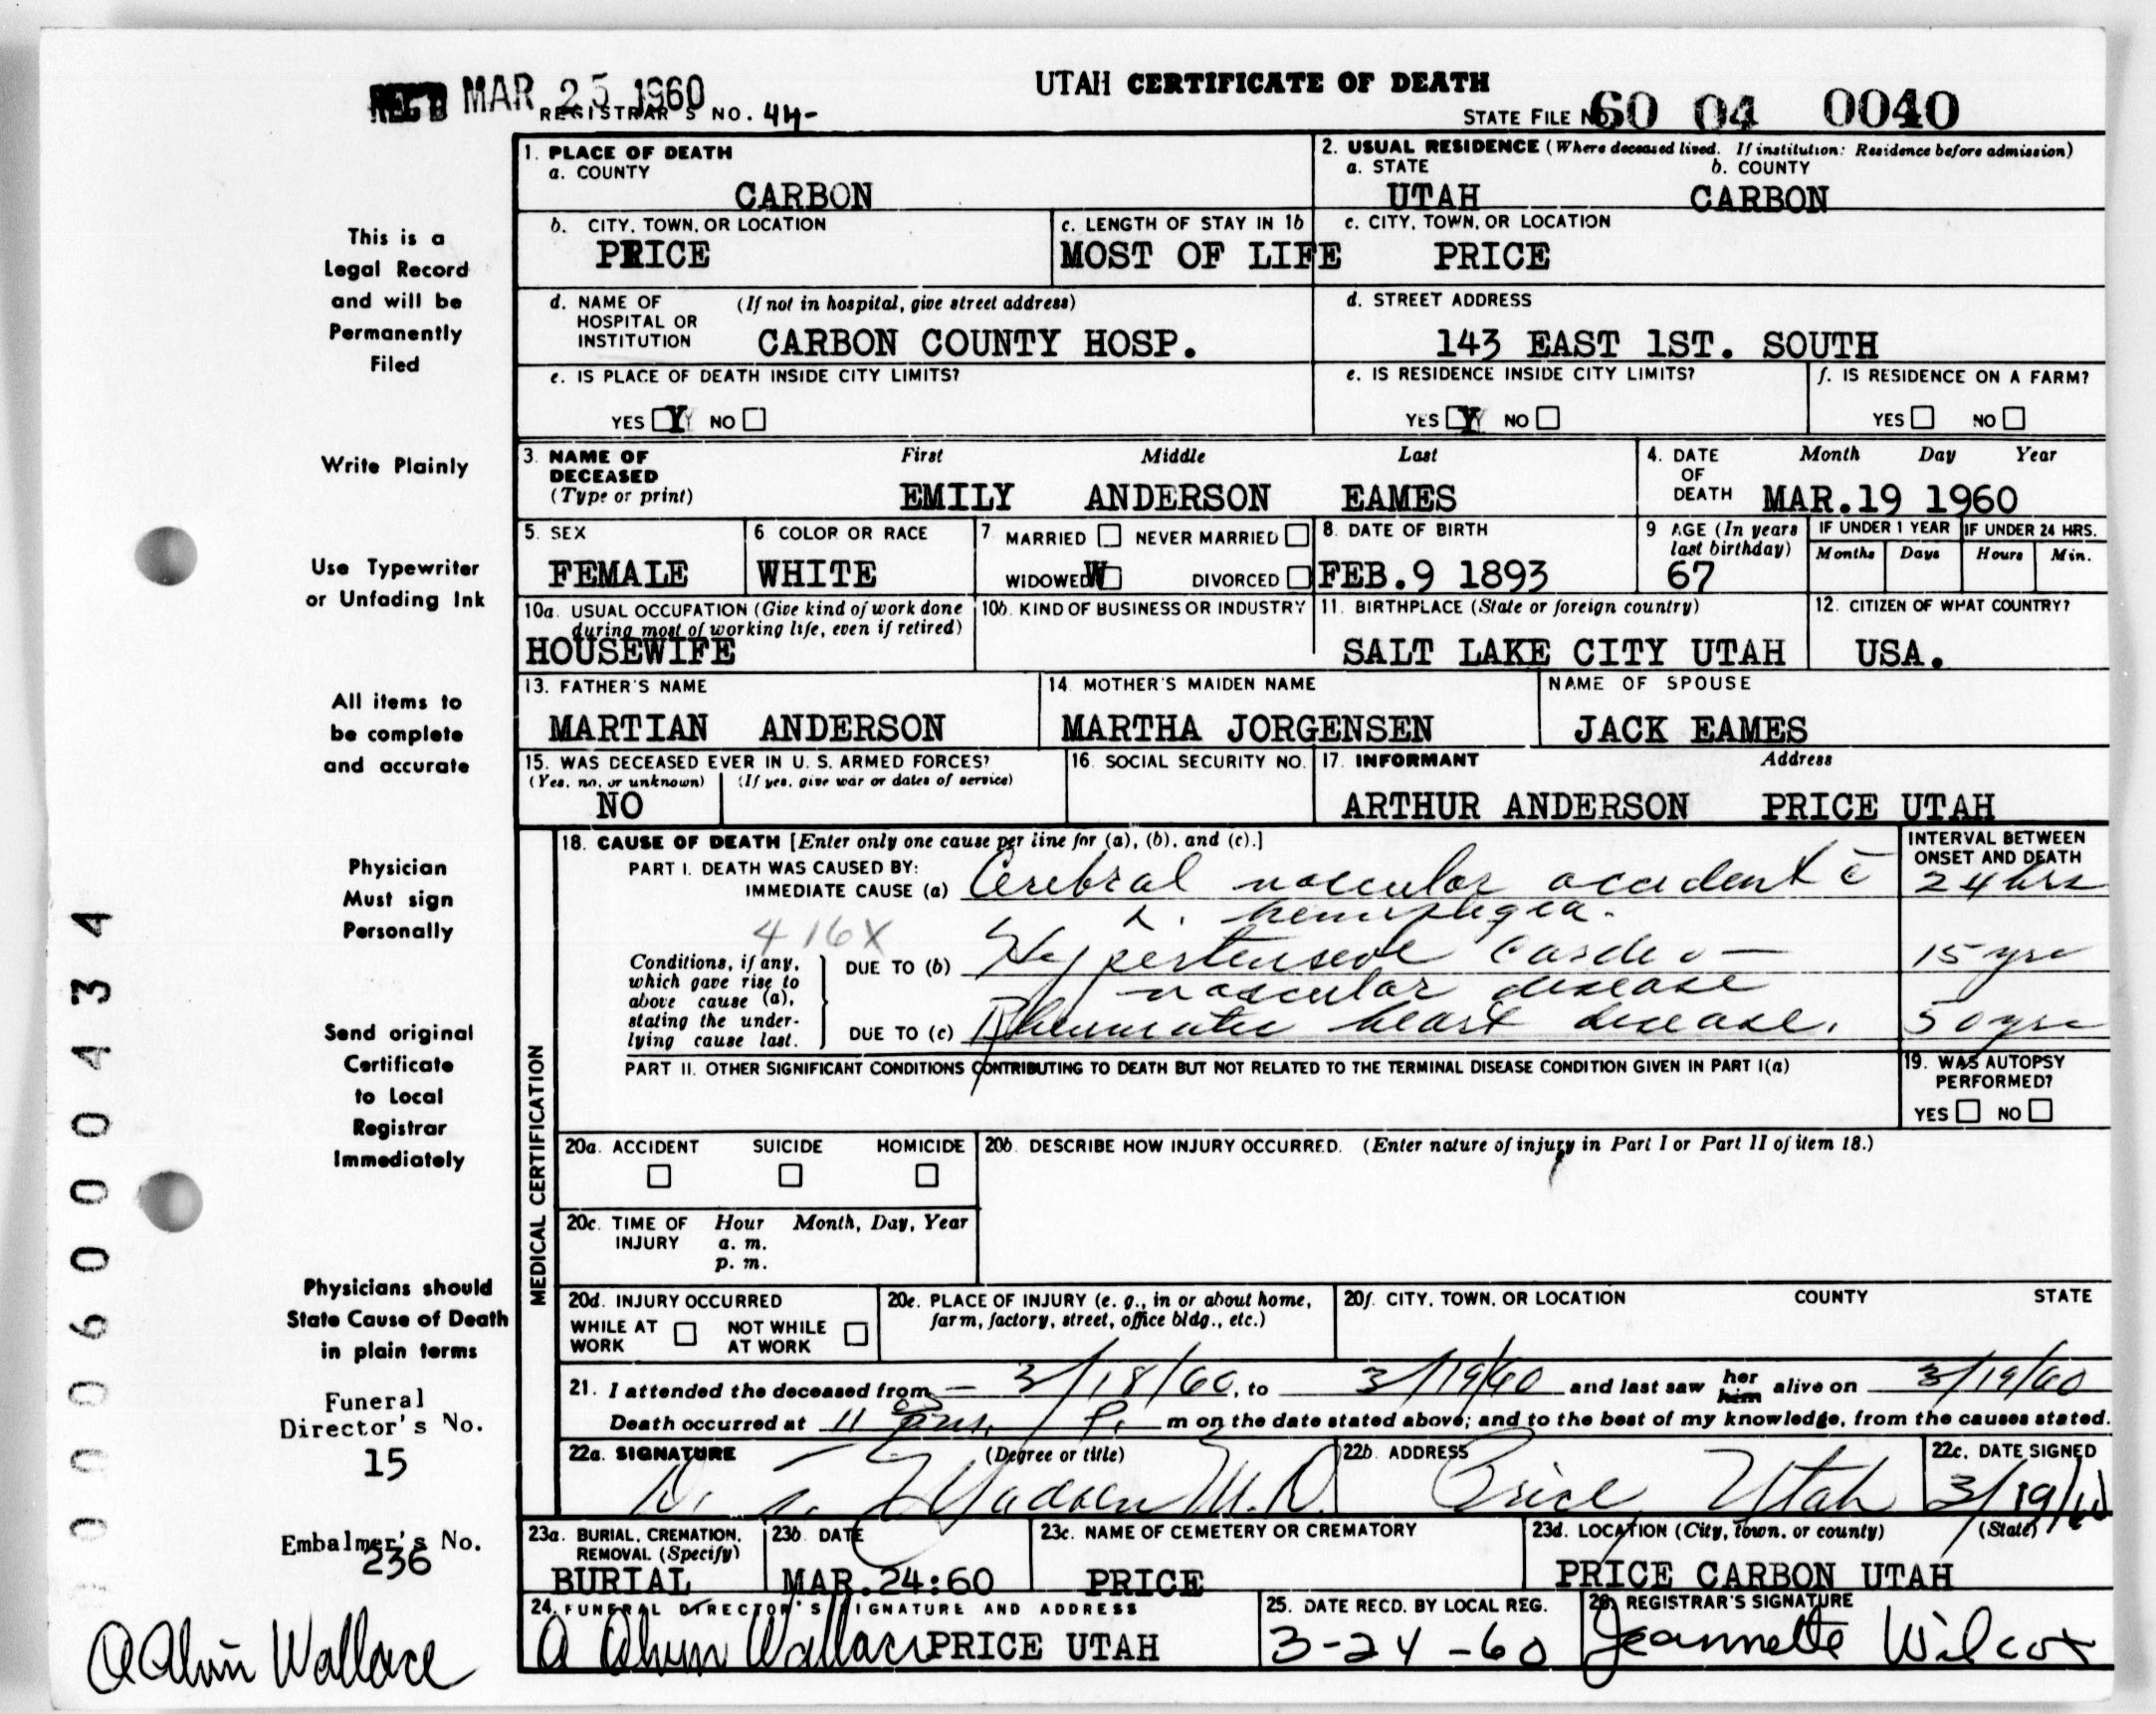 REC'D MAR 25 1960
UTAH CERTIFICATE OF DEATH
REGISTRAR'S NO. 44-
STATE FILE NO. 60 04 0040
1. PLACE OF DEATH
a. COUNTY
CARBON
2. USUAL RESIDENCE (Where deceased lived. If institution: Residence before admission)
a. STATE b. COUNTY
UTAH CARBON
b. CITY, TOWN, OR LOCATION
PRICE
c. LENGTH OF STAY IN 1b
MOST OF LIFE
c. CITY, TOWN, OR LOCATION
PRICE
d. NAME OF HOSPITAL OR INSTITUTION (If not in hospital, give street address)
CARBON COUNTY HOSP.
d. STREET ADDRESS
143 EAST 1ST. SOUTH
e. IS PLACE OF DEATH INSIDE CITY LIMITS?
YES Y NO
e. IS RESIDENCE INSIDE CITY LIMITS?
YES Y NO
f. IS RESIDENCE ON A FARM?
YES NO
3. NAME OF DECEASED (Type or print)
First Middle Last
EMILY ANDERSON EAMES
4. DATE OF DEATH
Month Day Year
MAR.19 1960
5. SEX
FEMALE
6 COLOR OR RACE
WHITE
7 MARRIED NEVER MARRIED
WIDOWED W DIVORCED
8. DATE OF BIRTH
FEB.9 1893
9 AGE (In years last birthday)
67
IF UNDER 1 YEAR
Months Days
IF UNDER 24 HRS.
Hours Min.
10a. USUAL OCCUPATION (Give kind of work done during most of working life, even if retired)
HOUSEWIFE
10b. KIND OF BUSINESS OR INDUSTRY
11. BIRTHPLACE (State or foreign country)
SALT LAKE CITY UTAH
12. CITIZEN OF WHAT COUNTRY?
USA.
13. FATHER'S NAME
MARTIAN ANDERSON
14 MOTHER'S MAIDEN NAME
MARTHA JORGENSEN
NAME OF SPOUSE
JACK EAMES
15. WAS DECEASED EVER IN U. S. ARMED FORCES?
(Yes, no, or unknown) (If yes, give war or dates of service)
NO
16. SOCIAL SECURITY NO.
17. INFORMANT Address
ARTHUR ANDERSON PRICE UTAH
MEDICAL CERTIFICATION
18. CAUSE OF DEATH [Enter only one cause per line for (a), (b), and (c).]
INTERVAL BETWEEN ONSET AND DEATH
PART I. DEATH WAS CAUSED BY:
IMMEDIATE CAUSE (a) Cerebral vascular accident c̄ 24 hrs
L. hemiplegia.
416X
Conditions, if any, which gave rise to above cause (a), stating the underlying cause last.
DUE TO (b) Hypertensive cardio- 15 yrs
vascular disease
DUE TO (c) Rheumatic heart disease. 50 yrs
PART II. OTHER SIGNIFICANT CONDITIONS CONTRIBUTING TO DEATH BUT NOT RELATED TO THE TERMINAL DISEASE CONDITION GIVEN IN PART I(a)
19. WAS AUTOPSY PERFORMED?
YES NO
20a. ACCIDENT SUICIDE HOMICIDE
20b. DESCRIBE HOW INJURY OCCURRED. (Enter nature of injury in Part I or Part II of item 18.)
20c. TIME OF INJURY Hour Month, Day, Year
a. m.
p. m.
20d. INJURY OCCURRED
WHILE AT WORK NOT WHILE AT WORK
20e. PLACE OF INJURY (e. g., in or about home, farm, factory, street, office bldg., etc.)
20f. CITY, TOWN, OR LOCATION COUNTY STATE
21. I attended the deceased from 3/18/60, to 3/19/60 and last saw her him alive on 3/19/60
Death occurred at 11 P. m on the date stated above; and to the best of my knowledge, from the causes stated.
22a. SIGNATURE (Degree or title)
Madsen M.D.
22b. ADDRESS
Price Utah
22c. DATE SIGNED
3/19/60
23a. BURIAL, CREMATION, REMOVAL (Specify)
BURIAL
23b. DATE
MAR.24:60
23c. NAME OF CEMETERY OR CREMATORY
PRICE
23d. LOCATION (City, town, or county) (State)
PRICE CARBON UTAH
24. FUNERAL DIRECTOR'S SIGNATURE AND ADDRESS
A Alvin Wallace PRICE UTAH
25. DATE RECD. BY LOCAL REG.
3-24-60
26. REGISTRAR'S SIGNATURE
Jeannette Wilcox
This is a
Legal Record
and will be
Permanently
Filed
Write Plainly
Use Typewriter
or Unfading Ink
All items to
be complete
and accurate
Physician
Must sign
Personally
Send original
Certificate
to Local
Registrar
Immediately
Physicians should
State Cause of Death
in plain terms
Funeral
Director's No.
15
Embalmer's No.
236
A Alvin Wallace
000060000434